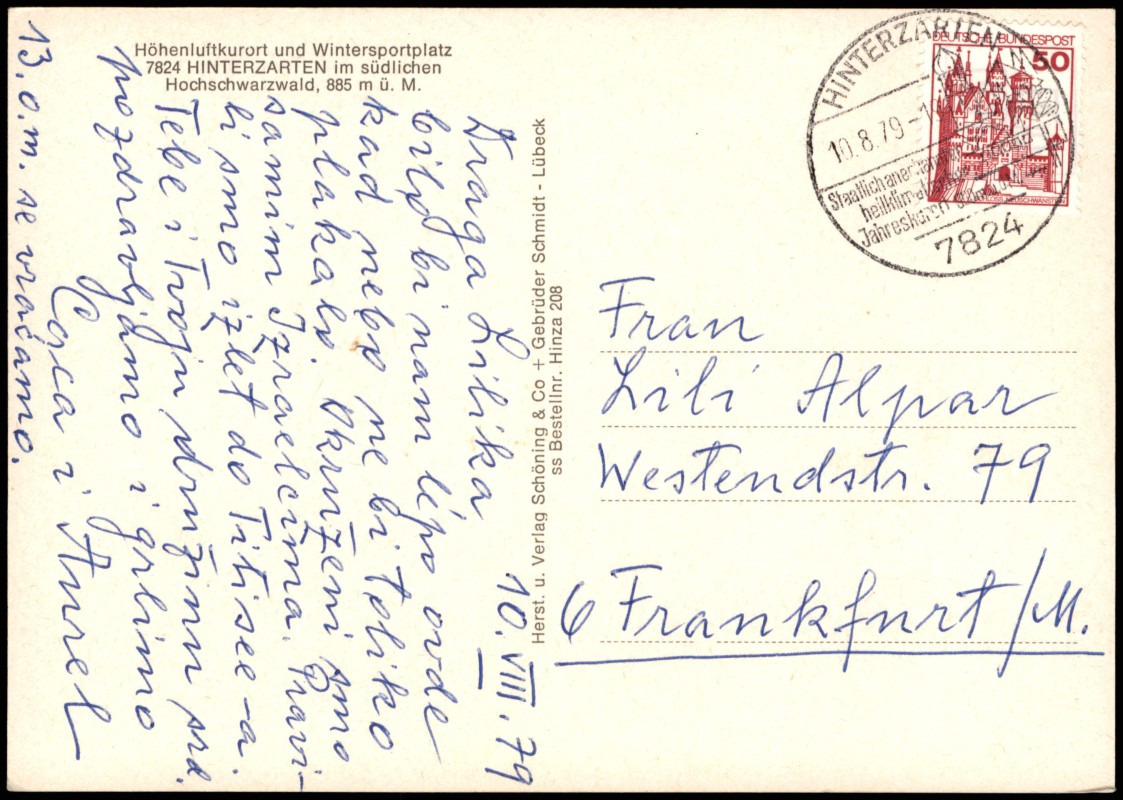 Höhenluftkurort und Wintersportplatz
7824 HINTERZARTEN im südlichen
Hochschwarzwald, 885 m ü. M.
10. VIII. 79
Draga Lilika,
bilo bi nam lépo ovde
kad nebo ne bi toliko
plakalo. Okruženi smo
samim Izraelcima. Pravi-
li smo izlet do Titisee-a.
Tebe i Tvoju družinu srd.
pozdravljamo i grlimo
Coca i Aurel
13. o.m. se vraćamo.
Herst. u. Verlag Schöning & Co + Gebrüder Schmidt - Lübeck
ss Bestellnr. Hinza 208
HINTERZARTEN
10.8.79
Staatlich anerkannter
Jahreskurort
7824
DEUTSCHE BUNDESPOST
50
Frau
Lili Alpar
Westendstr. 79
6 Frankfurt/M.